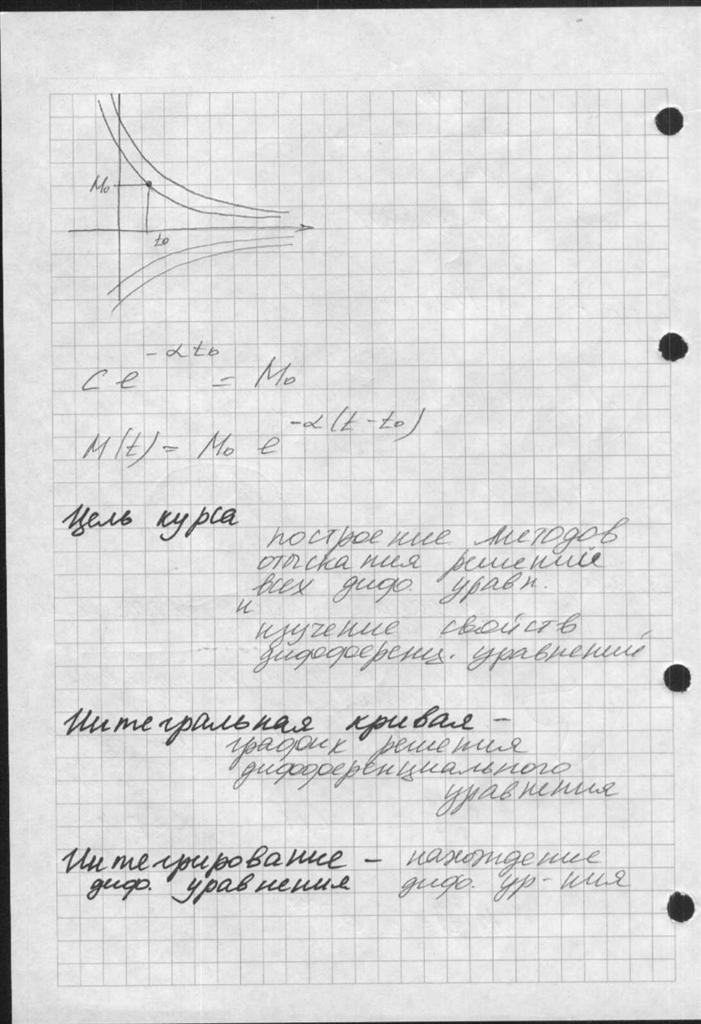 M₀
t₀
C e^{-αt₀} = M₀
M(t) = M₀ e^{-α(t-t₀)}
Цель курса
построение методов
отыскания решений
всех диф. уравн.
и
изучение свойств
дифференц. уравнений
Интегральная кривая –
график решения
дифференциального
уравнения
Интегрирование – нахождение
диф. уравнения диф. ур-ния